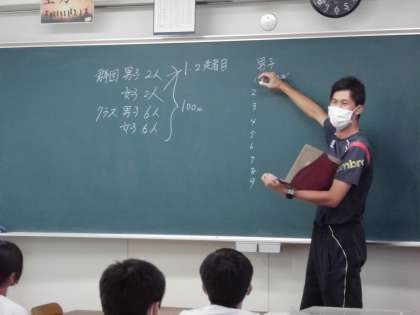 群団 男子 2人 1.2走者目
女子 2人
クラス 男子 6人 100m
女子 6人
男子
2
3
4
5
6
7
8
9
umbro